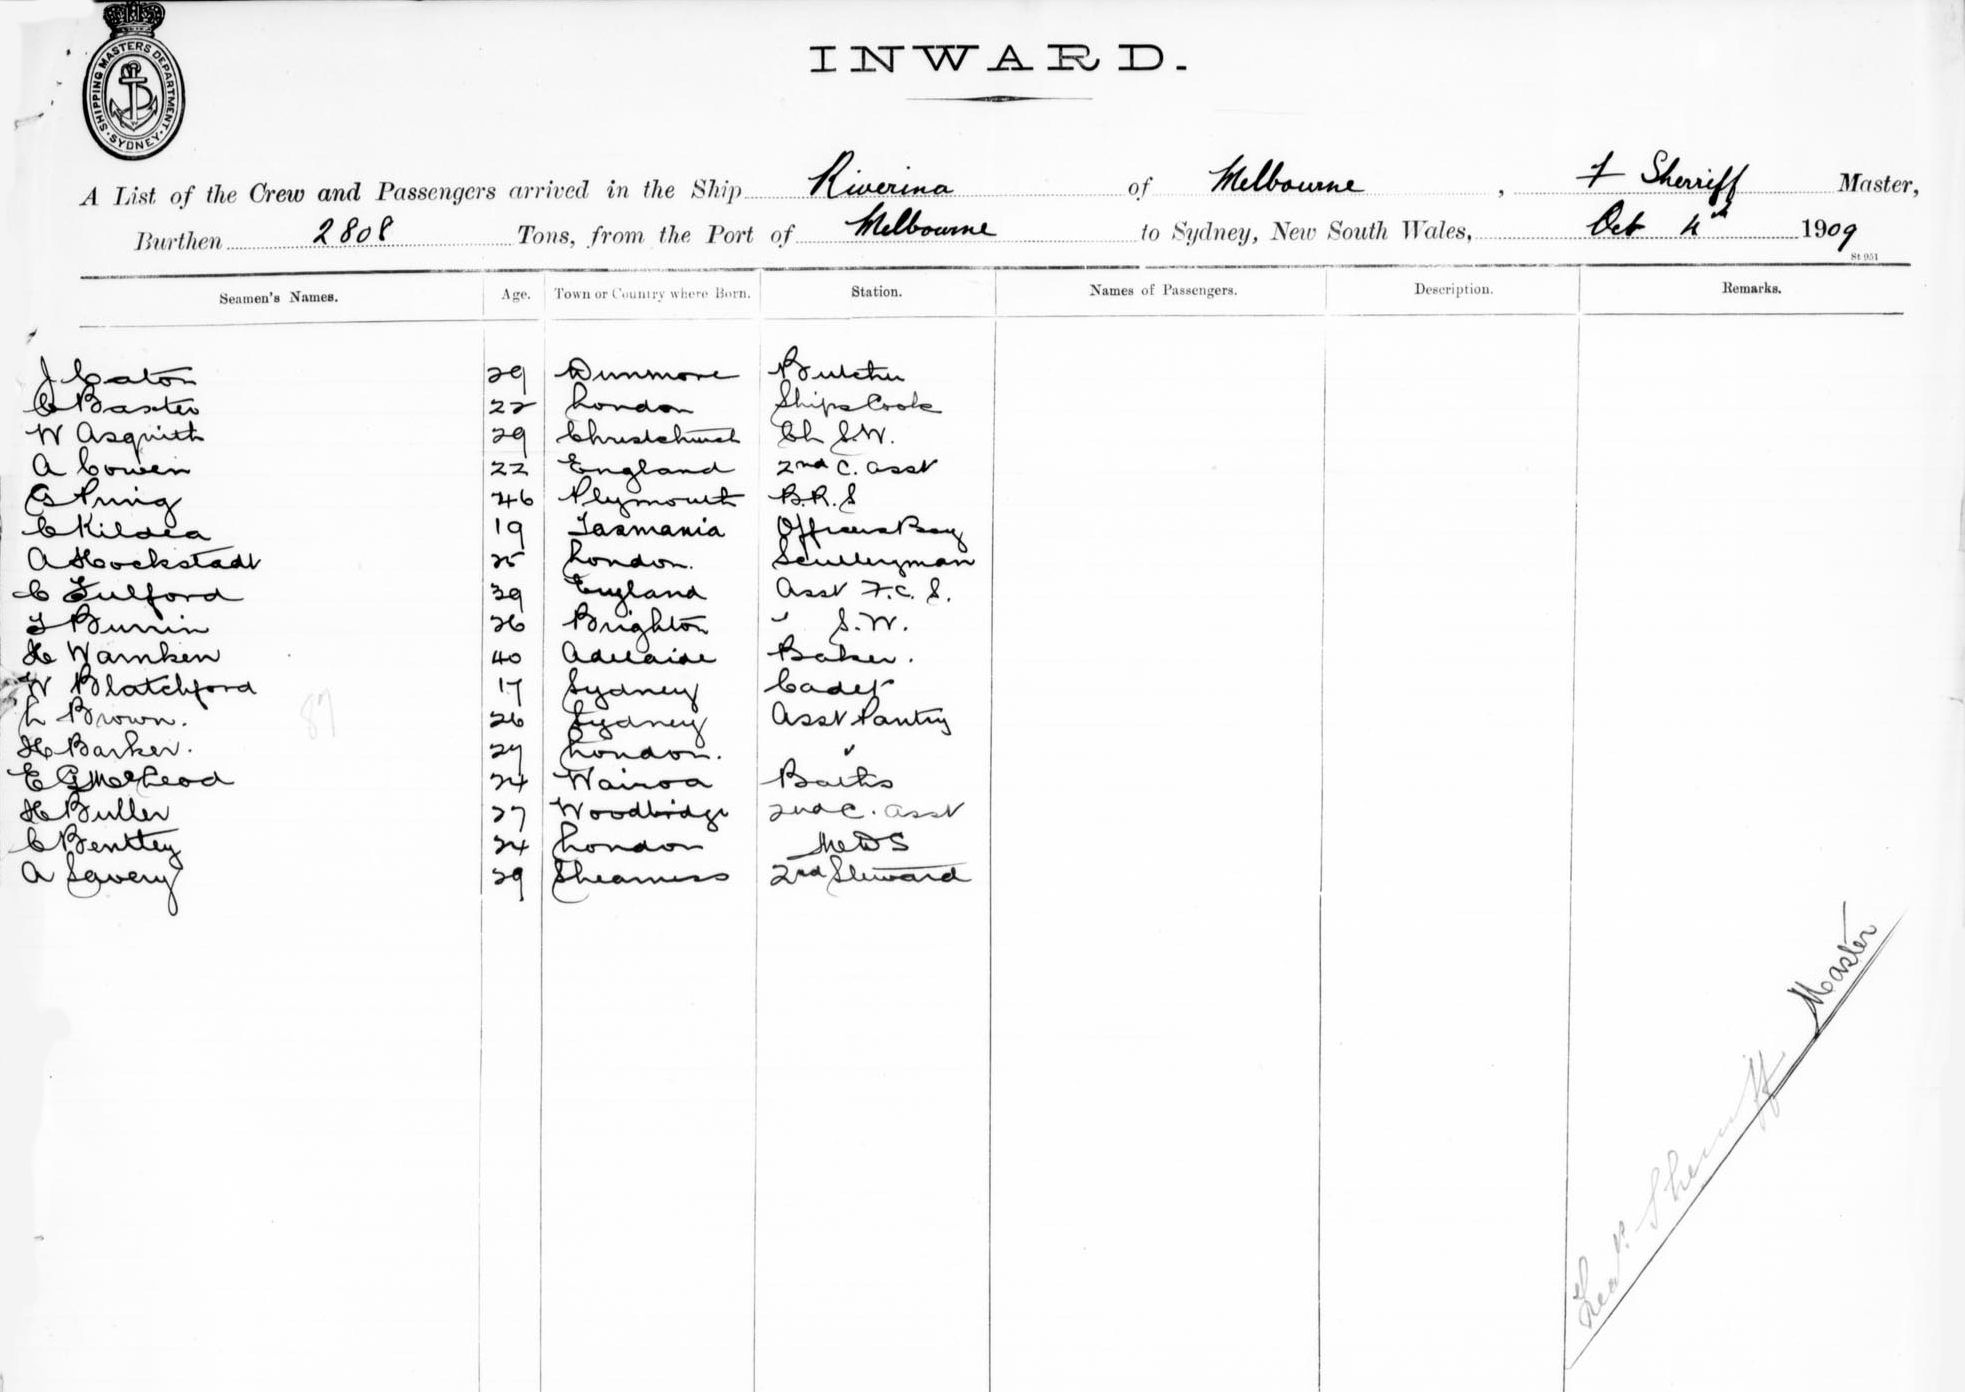 SHIPPING MASTERS DEPARTMENT
SYDNEY
INWARD.
A List of the Crew and Passengers arrived in the Ship Riverina of Melbourne, F Sherriff Master,
Burthen 2808 Tons, from the Port of Melbourne to Sydney, New South Wales, Oct 4th 1909
St 951
Seamen's Names. Age. Town or Country where Born. Station. Names of Passengers. Description. Remarks.
J Caton 29 Dunmore Butcher
C Baxter 22 London Ships Cook
W Asquith 29 Christchurch Ch S.W.
A Cowen 22 England 2nd C. Asst
G Pring 46 Plymouth B.R.S
C Kildea 19 Tasmania Officers Boy
A Hockstadt 25 London. Sculleryman
C Fulford 39 England Asst F.C.S.
T Burrin 26 Brighton " S.W.
H Warnken 40 Adelaide Baker.
W Blatchford 17 Sydney Cadet
L Brown. 26 Sydney Asst Pantry
87
H Barker. 27 London. "
E G McLeod 24 Wairoa Baths
H Buller 27 Woodbridge 2nd C. Asst
C Bentley 24 London
A Savery 29 Shearness 2nd Steward
Fredk. Sherriff Master